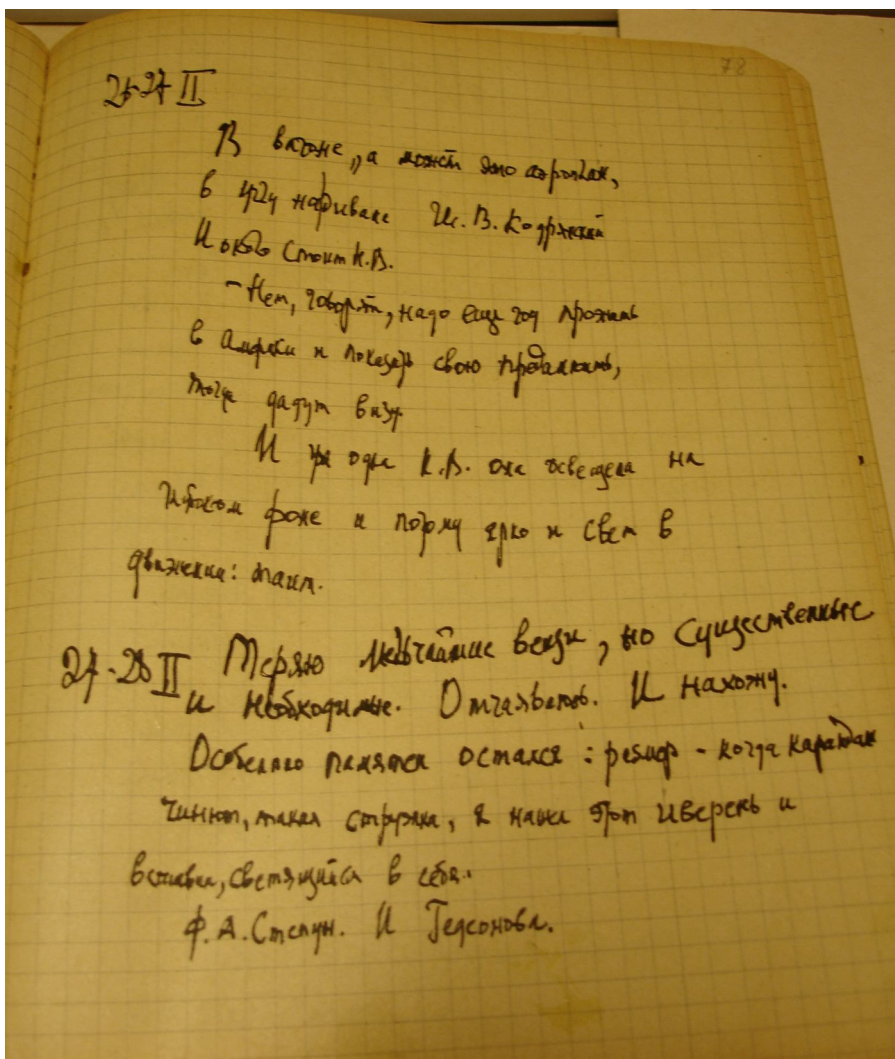 78
26-27 II
В вагоне, а может это аэроплан,
в углу И. В. Кодрянский
И около стоит Н.В.
- Нет, говорят, надо еще год прожить
в Америки и показать свою
тогда дадут визу
И одна Н.В. она освещена на
фоне и потому ярко и свет в
движении:
27-28 II Теряю мельчайшие вещи, но существенные
и необходимые. Отчаяваюсь. И нахожу.
Особенно памятен остался: - когда карандаш
чинют, такая стружка, я нашел этот иверень и
вставил, светящийся в себя.
Ф. А. Степун. И